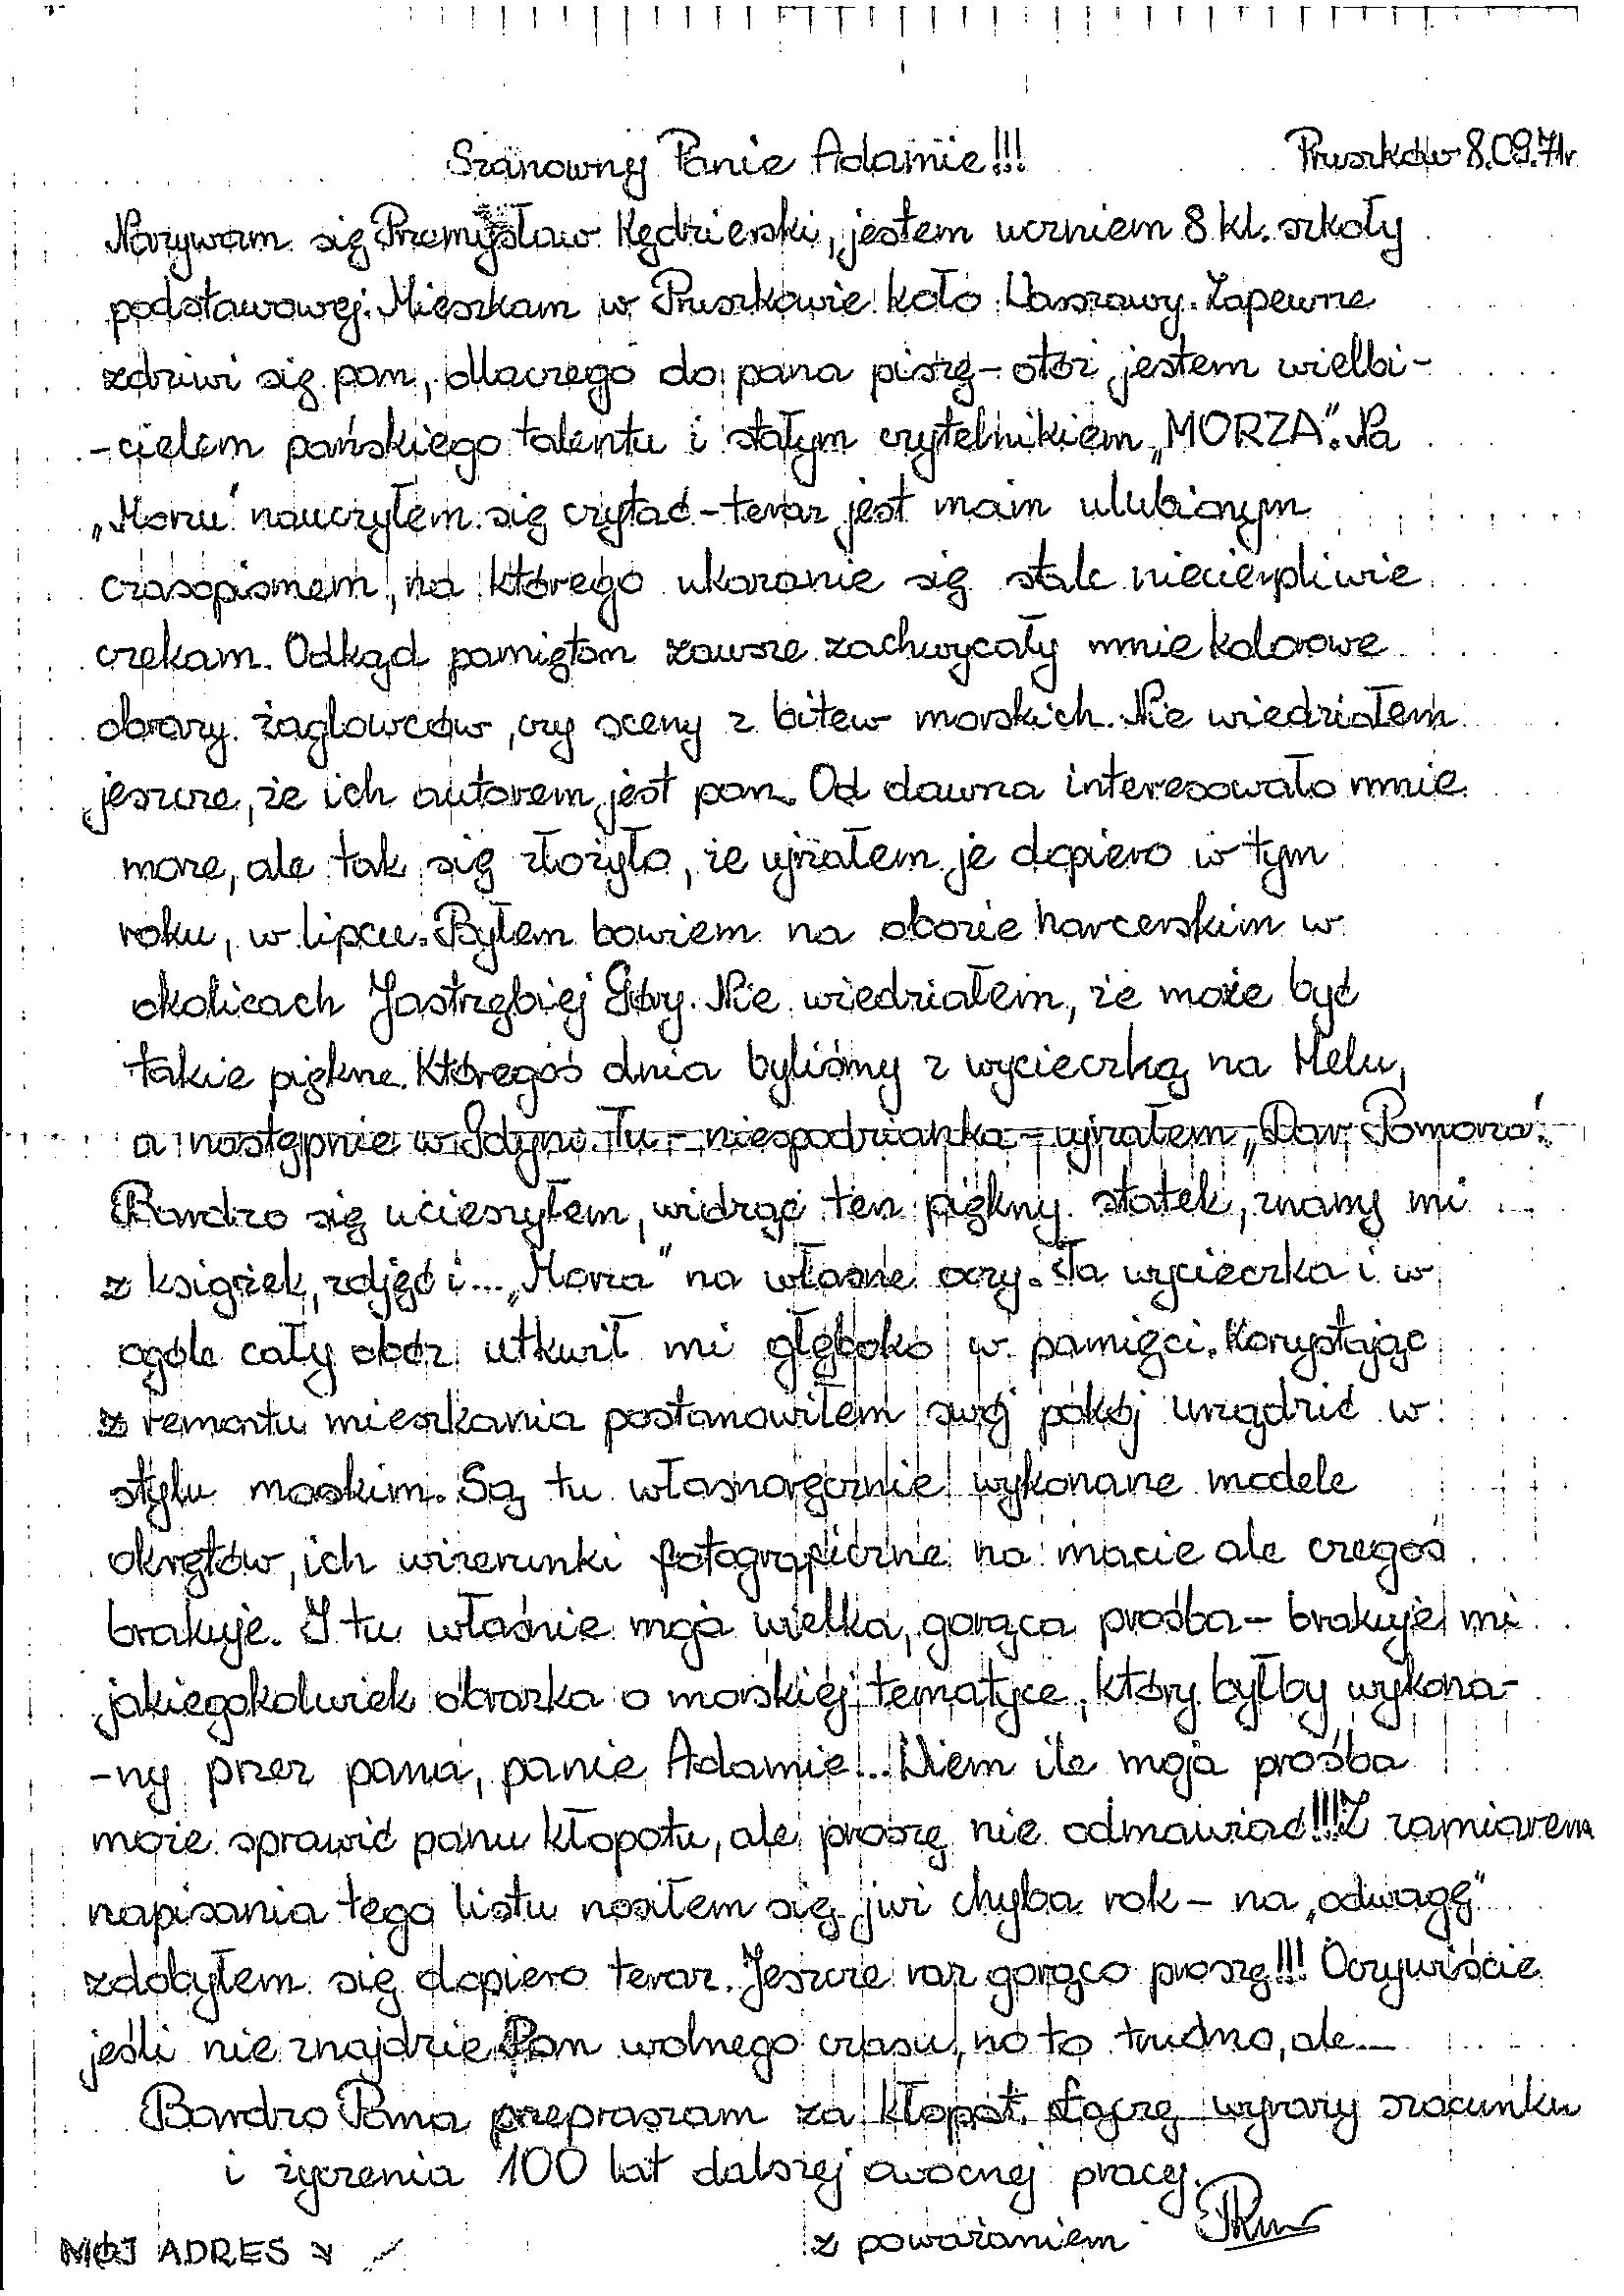 Szanowny Panie Adamie!!! Pruszków 8.09.71r
Nazywam się Przemysław Kędzierski, jestem uczniem 8 kl. szkoły
podstawowej. Mieszkam w Pruszkowie koło Warszawy. Zapewne
zdziwi się pan, dlaczego do pana piszę - otóż jestem wielbi-
-cielem pańskiego talentu i stałym czytelnikiem „MORZA". Na
„Morzu" nauczyłem się czytać - teraz jest moim ulubionym
czasopismem, na którego ukazanie się stale niecierpliwie
czekam. Odkąd pamiętam zawsze zachwycały mnie kolorowe
obrazy żaglowców, czy sceny z bitew morskich. Nie wiedziałem
jeszcze, że ich autorem jest pan. Od dawna interesowało mnie
morze, ale tak się złożyło, że ujrzałem je dopiero w tym
roku, w lipcu. Byłem bowiem na obozie harcerskim w
okolicach Jastrzębiej Góry. Nie wiedziałem, że może być
takie piękne. Któregoś dnia byliśmy z wycieczką na Helu,
a następnie w Gdyni. Tu - niespodzianka - ujrzałem „Dar Pomorza".
Bardzo się ucieszyłem, widząc ten piękny statek, znany mi
z książek, zdjęć i... „Morza" na własne oczy. Ta wycieczka i w
ogóle cały obóz utkwił mi głęboko w pamięci. Korzystając
z remontu mieszkania postanowiłem swój pokój urządzić w
stylu morskim. Są tu własnoręcznie wykonane modele
okrętów, ich wizerunki fotograficzne na macie ale czegoś
brakuje. I tu właśnie moja wielka, gorąca prośba - brakuje mi
jakiegokolwiek obrazka o morskiej tematyce, który byłby wykona-
-ny przez pana, panie Adamie... Wiem ile moja prośba
może sprawić panu kłopotu, ale proszę nie odmawiać!!! Z zamiarem
napisania tego listu nosiłem się już chyba rok - na „odwagę"
zdobyłem się dopiero teraz. Jeszcze raz gorąco proszę!!! Oczywiście
jeśli nie znajdzie Pan wolnego czasu, no to trudno, ale...
Bardzo Pana przepraszam za kłopot. Łączę wyrazy szacunku
i życzenia 100 lat dalszej owocnej pracy.
z poważaniem
MÓJ ADRES